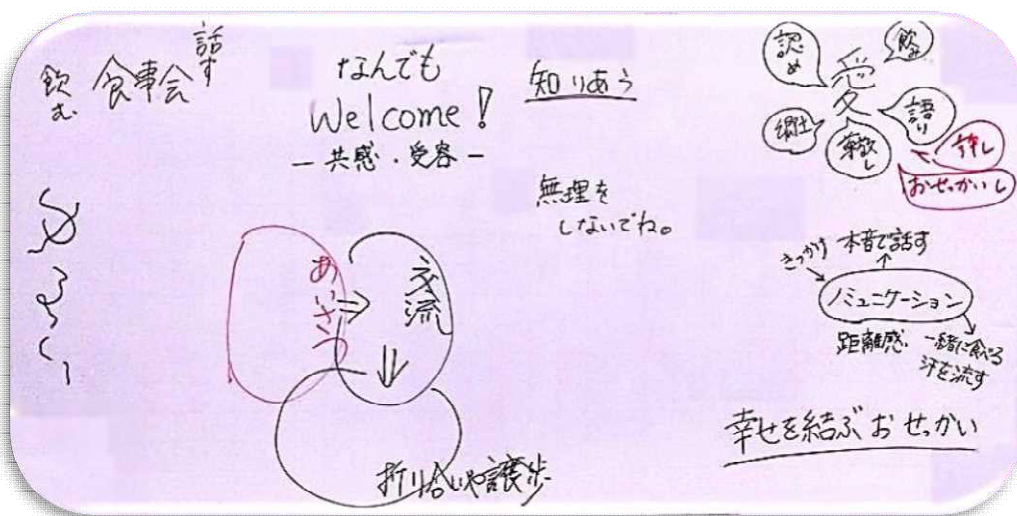 話す
飲む
食事会
なんでも
Welcome!
－共感・受容－
知りあう
無理を
しないでね。
あいさつ
⇒
交流
⇓
折り合いや譲歩
愛
認め
飲み
語り
郷土
許し
おせっかいし
きっかけ
本音で話す
ノミュニケーション
距離感
一緒に食べる
汗を流す
幸せを結ぶおせっかい